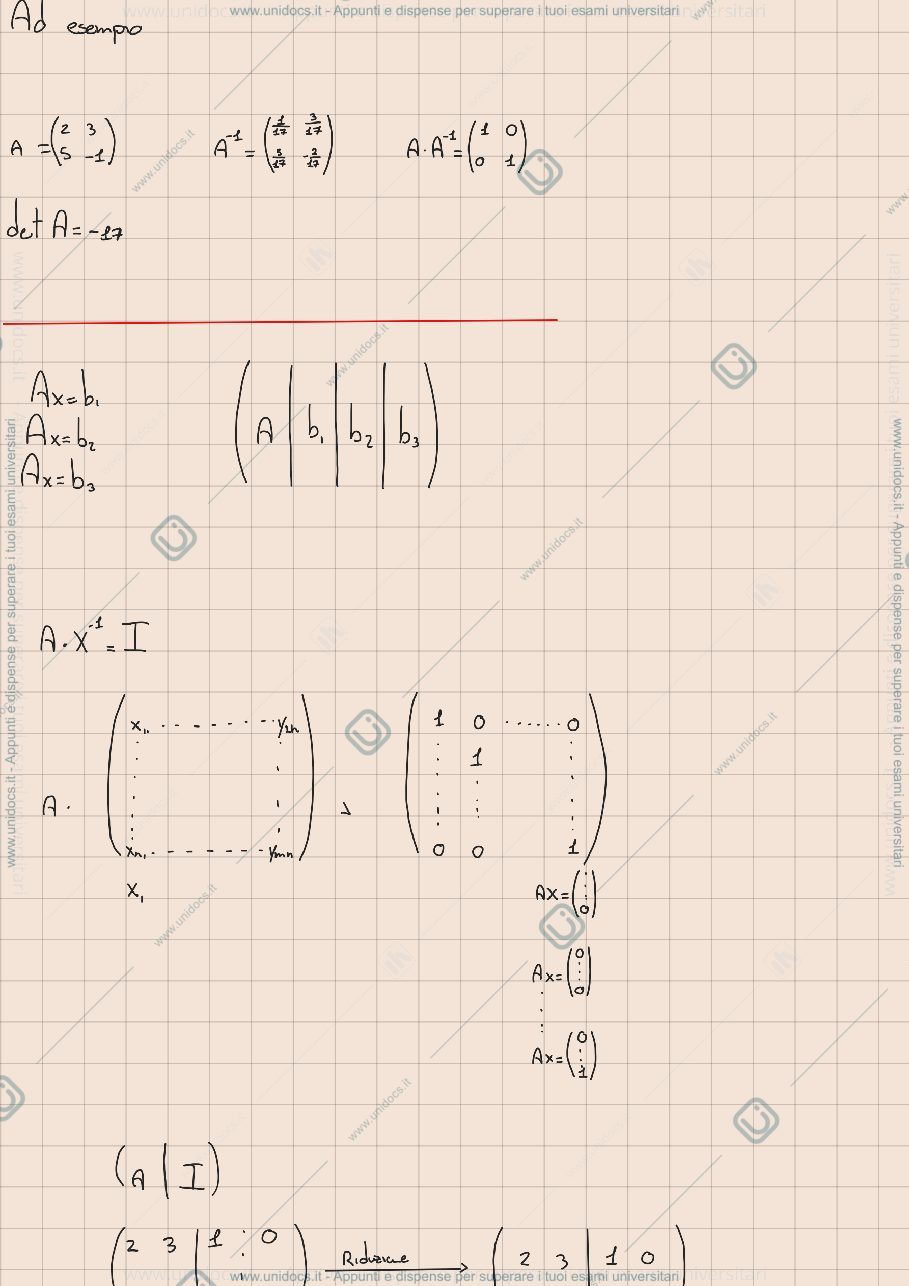 www.unidocs.it - Appunti e dispense per superare i tuoi esami universitari
Ad esempio
A = (2 3
5 -1)
A⁻¹ = (1/17 3/17
5/17 -2/17)
A·A⁻¹ = (1 0
0 1)
det A = -17
Ax = b₁
Ax = b₂
Ax = b₃
( A | b₁ | b₂ | b₃ )
A·X⁻¹ = I
A·
1 0 ...... 0
1
0 0 1
x₁
Ax = (⋮ 0)
Ax = (0 ⋮ 0)
Ax = (0 ⋮ 1)
( A | I )
( 2 3 | 1 0 )
Riduzione
( 2 3 | 1 0 )
www.unidocs.it - Appunti e dispense per superare i tuoi esami universitari